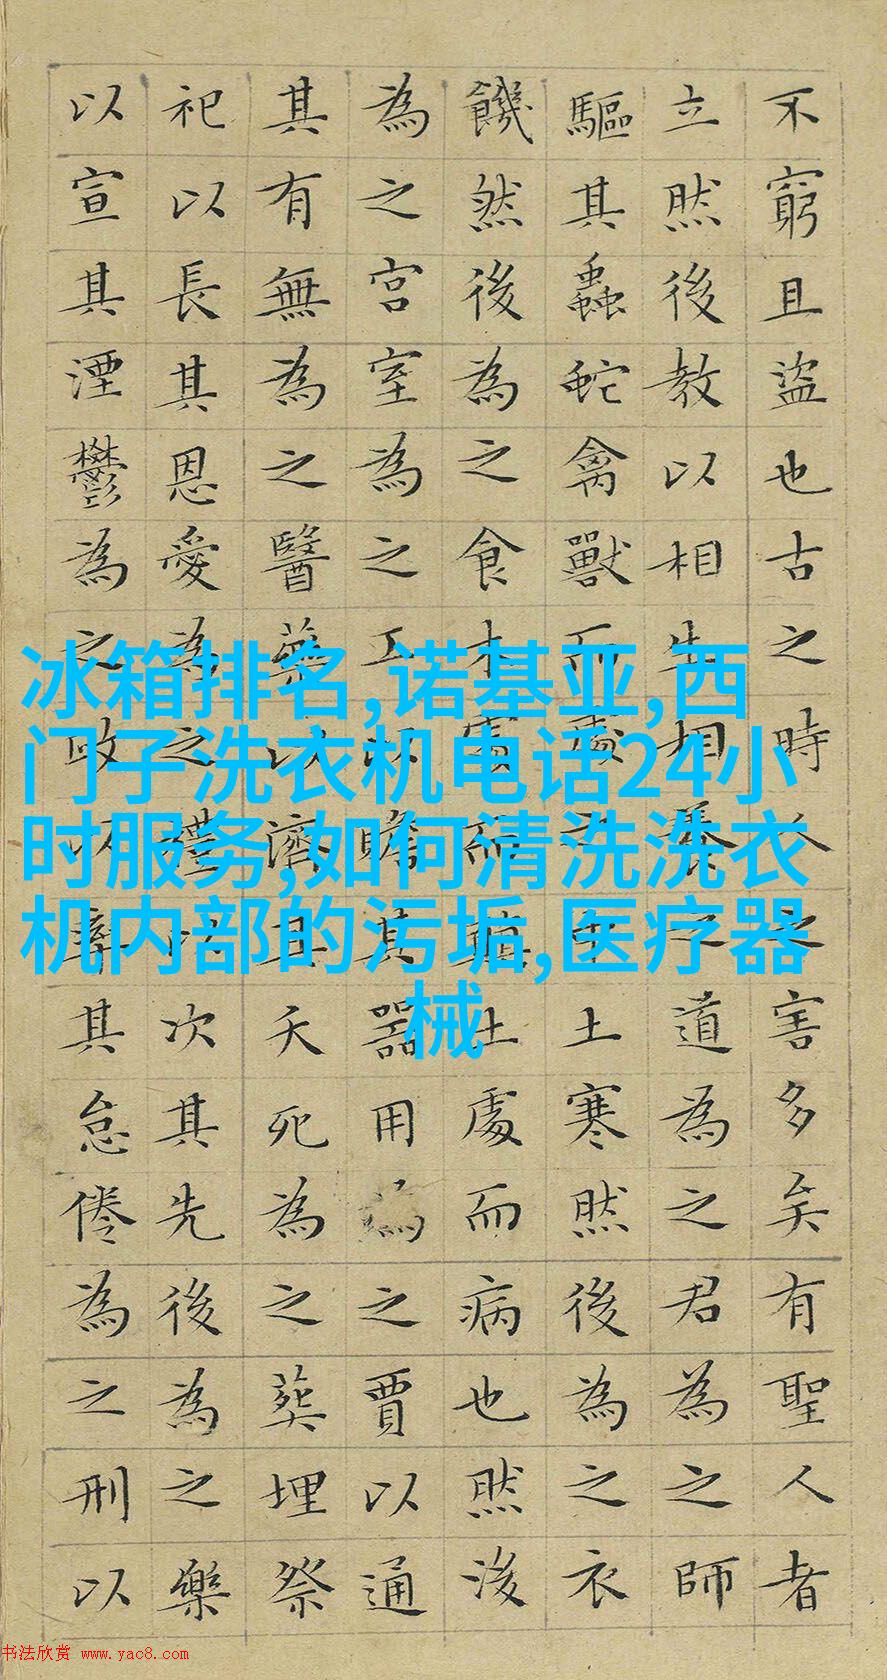 不窮且盜也古之時人之害多矣有聖人者
立然後教以相生相養之道為之君為之師
驅其蟲蛇禽獸而處之中土寒然後為之衣
饑然後為之食木處而顛土處而病也然後
為之宮室為之工以贍其器用為之賈以通
其有無為之醫藥以濟其夭死為之葬埋祭
祀以長其恩愛為之禮以次其先後為之樂
以宣其湮鬱為之政以率其怠倦為之刑以
冰箱排名,诺基亚,西
门子洗衣机电话24小
时服务,如何清洗洗衣
机内部的污垢,医疗器
械
书法欣赏 www.yac8.com